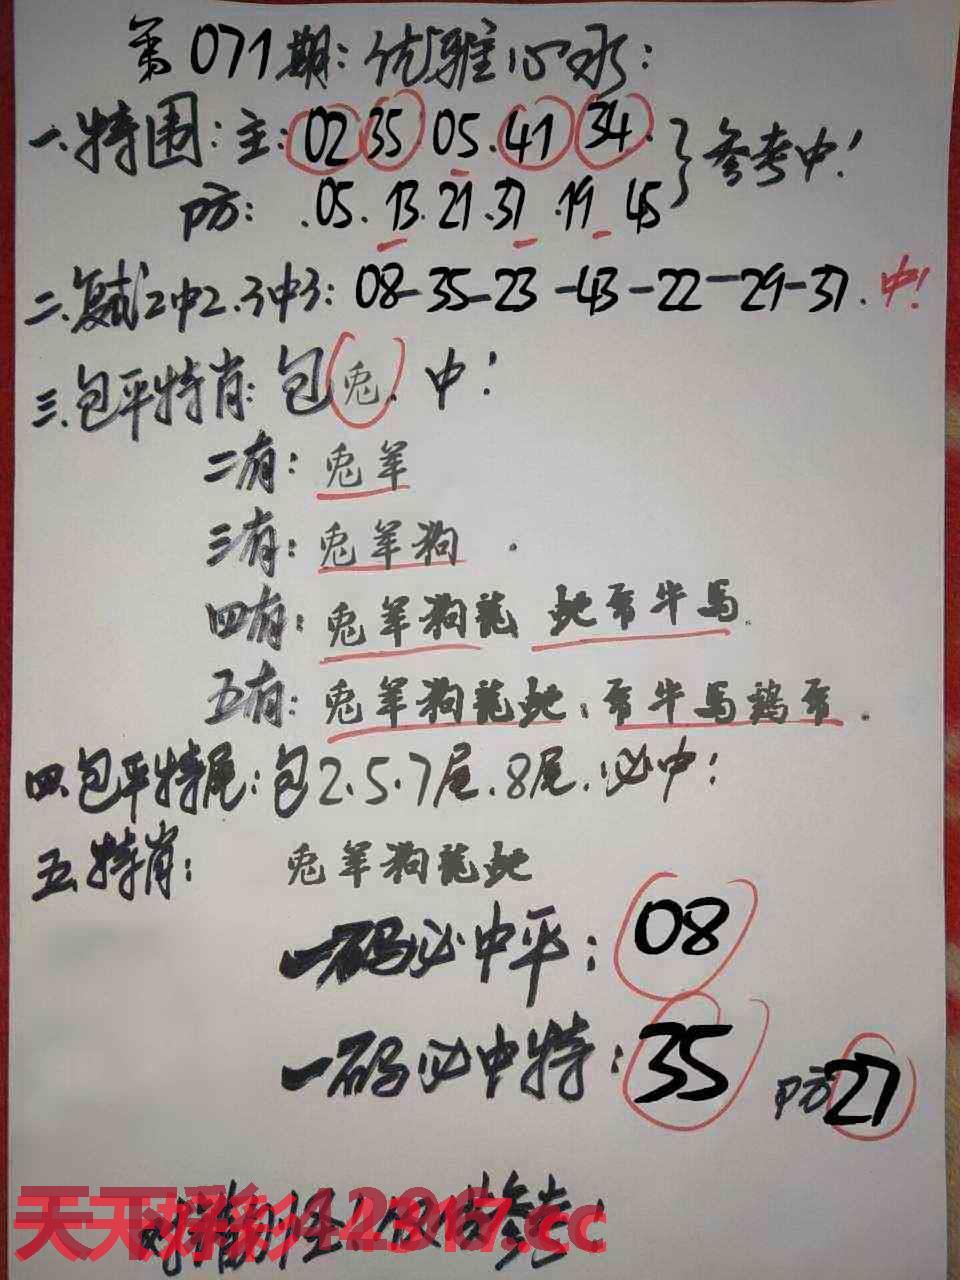 第071期：优雅心水：
一.特围：主：02 35 05.41 34. 参考中！
防：.05.13.21.37.19 45
二.复式2中2.3中3：08-35-23-43-22-29-37.中！
三.包平特肖：包兔.中！
二有：兔羊
三有：兔羊狗.
四有：兔羊狗龍 蛇 牛马.
五有：兔羊狗龍蛇. 牛马鸡.
四.包平特尾：包2.5.7尾.8尾.必中！
五.特肖：兔羊狗龍蛇
一码必中平：08
一码必中特：35 防27
天下彩 12317.cc